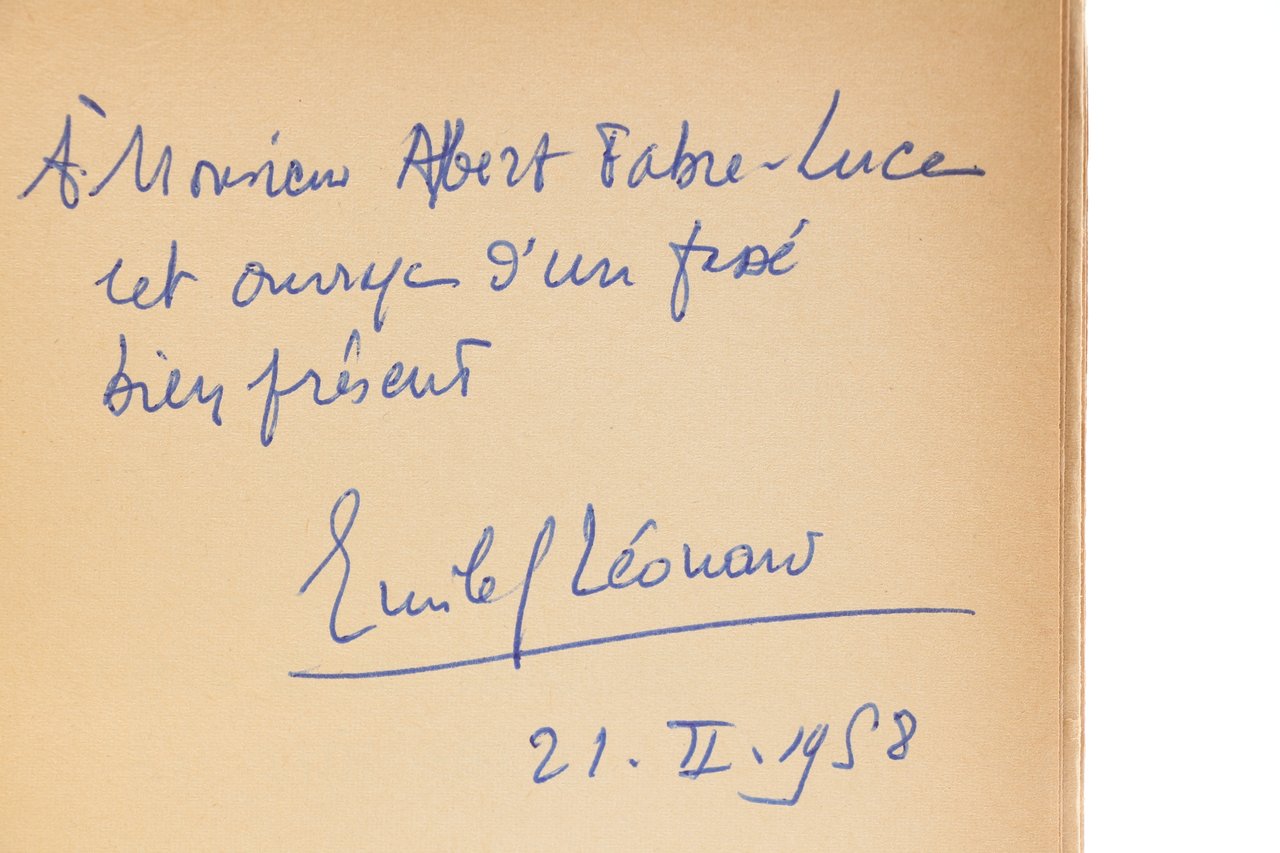 À Monsieur Albert Fabre-Luce
cet ouvrage d'un passé
bien présent
Emile G Léonard
21. II. 1958